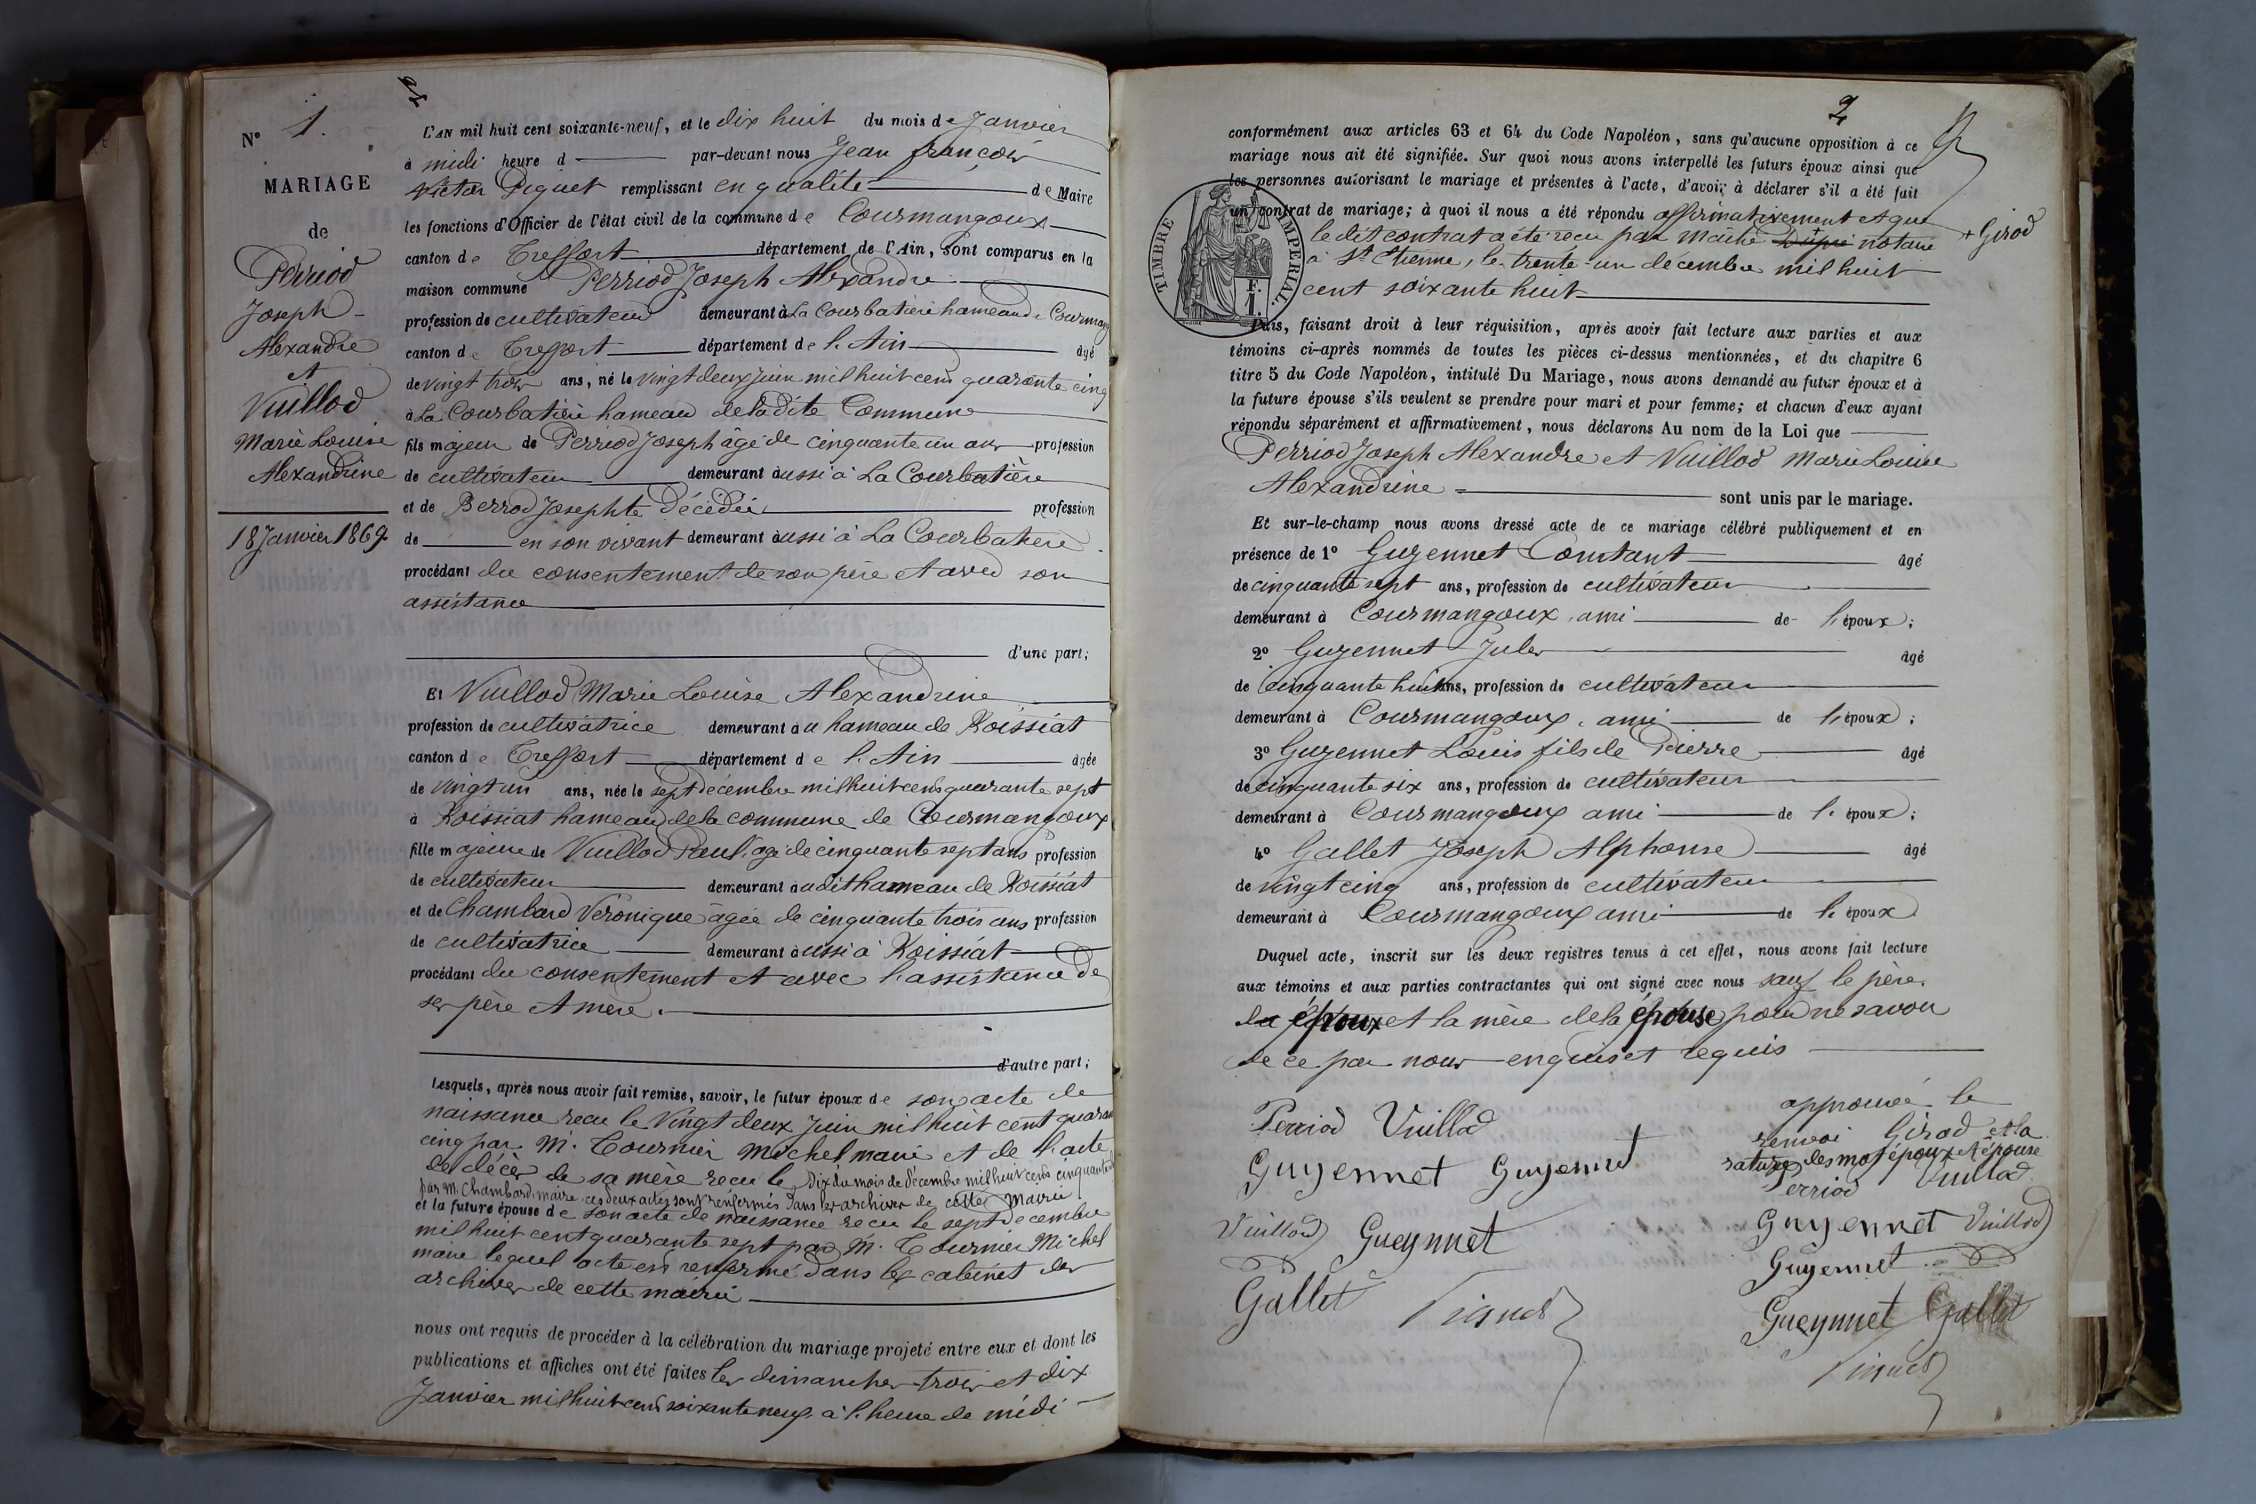 N° 1.
MARIAGE
de
Perriod
Joseph
Alexandre
et
Vuillod
Marie Louise
Alexandrine
18 Janvier 1869.
L'AN mil huit cent soixante-neuf, et le dix huit du mois de Janvier
à midi heure d par-devant nous Jean françois
Victor Piquet remplissant en qualité de Maire
les fonctions d'Officier de l'état civil de la commune de Courmangoux
canton de Treffort département de l'Ain, sont comparus en la
maison commune Perriod Joseph Alexandre
profession de cultivateur demeurant à La Courbatière hameau de Courmang
canton de Treffort département de l'Ain âgé
de vingt trois ans, né le vingt deux Juin mil huit cent quarante cinq
à La Courbatière hameau de la dite Commune
fils majeur de Perriod Joseph âgé de cinquante un ans profession
de cultivateur demeurant aussi à La Courbatière
et de Berrod Josephte Décédée profession
de en son vivant demeurant aussi à La Courbatiere
procédant du consentement de son père et avec son
assistance
d'une part;
Et Vuillod Marie Louise Alexandrine
profession de cultivatrice demeurant au hameau de Roissiat
canton de Treffort département de l'Ain âgée
de vingt un ans, née le sept Décembre mil huit cent quarante sept
à Roissiat hameau de la commune de Courmangoux
fille majeure de Vuillod Paul âgé de cinquante sept ans profession
de cultivateur demeurant audit hameau de Roissiat
et de Chambard Véronique âgée de cinquante trois ans profession
de cultivatrice demeurant aussi à Roissiat
procédant du consentement et avec l'assistance de
ses père et mère.
d'autre part;
Lesquels, après nous avoir fait remise, savoir, le futur époux de son acte de
naissance reçu le vingt deux Juin mil huit cent quaran
cinq par M. Tournier Michel maire et de l'acte
de décès de sa mère reçu le Dix du mois de décembre mil huit cent cinquante
par M. Chambard, maire ces deux actes sont renfermés dans les archives de cette Mairie
et la future épouse de son acte de naissance reçu le sept Decembre
mil huit cent quarante sept par M. Tournier Michel
maire lequel acte est renfermé dans les cabinet des
archives de cette mairie
nous ont requis de procéder à la célébration du mariage projeté entre eux et dont les
publications et affiches ont été faites les dimanches trois et dix
Janvier mil huit cent soixante neuf à l'heure de midi
2
conformément aux articles 63 et 64 du Code Napoléon, sans qu'aucune opposition à ce
mariage nous ait été signifiée. Sur quoi nous avons interpellé les futurs époux ainsi que
les personnes autorisant le mariage et présentes à l'acte, d'avoir à déclarer s'il a été fait
un contrat de mariage; à quoi il nous a été répondu affirmativement et que
le dit contrat a été reçu par Maître Dupré notaire + Girod
à St Etienne, le trente-un décembre mil huit
cent soixante huit
TIMBRE IMPERIAL.
F.
1.
Puis, faisant droit à leur réquisition, après avoir fait lecture aux parties et aux
témoins ci-après nommés de toutes les pièces ci-dessus mentionnées, et du chapitre 6
titre 5 du Code Napoléon, intitulé Du Mariage, nous avons demandé au futur époux et à
la future épouse s'ils veulent se prendre pour mari et pour femme; et chacun d'eux ayant
répondu séparément et affirmativement, nous déclarons Au nom de la Loi que
Perriod Joseph Alexandre et Vuillod Marie Louise
Alexandrine sont unis par le mariage.
Et sur-le-champ nous avons dressé acte de ce mariage célébré publiquement et en
présence de 1° Guyennet Constant âgé
de cinquante sept ans, profession de cultivateur
demeurant à Courmangoux, ami de l'époux;
2° Guyennet Jules âgé
de cinquante huit ans, profession de cultivateur
demeurant à Courmangoux, ami de l'époux;
3° Guyennet Louis fils de Pierre âgé
de cinquante six ans, profession de cultivateur
demeurant à Courmangoux ami de l'époux;
4° Gallet Joseph Alphonse âgé
de vingt cinq ans, profession de cultivateur
demeurant à Courmangoux ami de l'époux
Duquel acte, inscrit sur les deux registres tenus à cet effet, nous avons fait lecture
aux témoins et aux parties contractantes qui ont signé avec nous sauf le père
de époux et la mère de la épouse pour ne savoir
de ce par nous enquis et requis
Perriod Vuillod
Guyennet Guyennet
Vuillod Gueynnet
Gallet Piquet
approuvé le
renvoi Girod et la
rature des mot époux et épouse
Perriod Vuillod
Guyennet Vuillod
Guyennet
Gueynnet Gallet
Piquet